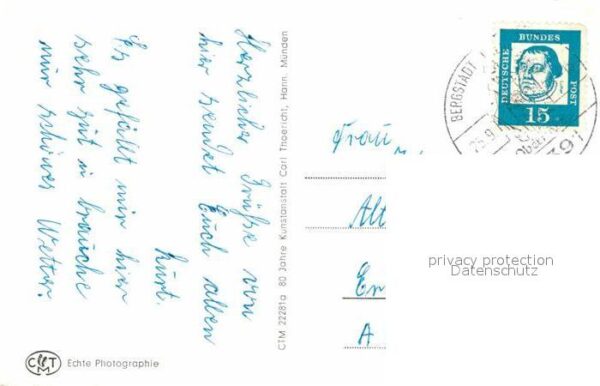 Herzlicher Grüße von
hier sendet Euch allen
Kurt.
Es gefällt mir hier
sehr gut u brauche
nur schönes Wetter.
CTM 22281a 80 Jahre Kunstanstalt Carl Thoericht, Hann. Münden
CTM Echte Photographie
Frau
Alt
Er
A
DEUTSCHE BUNDES POST
15
BERGSTADT
privacy protection
Datenschutz